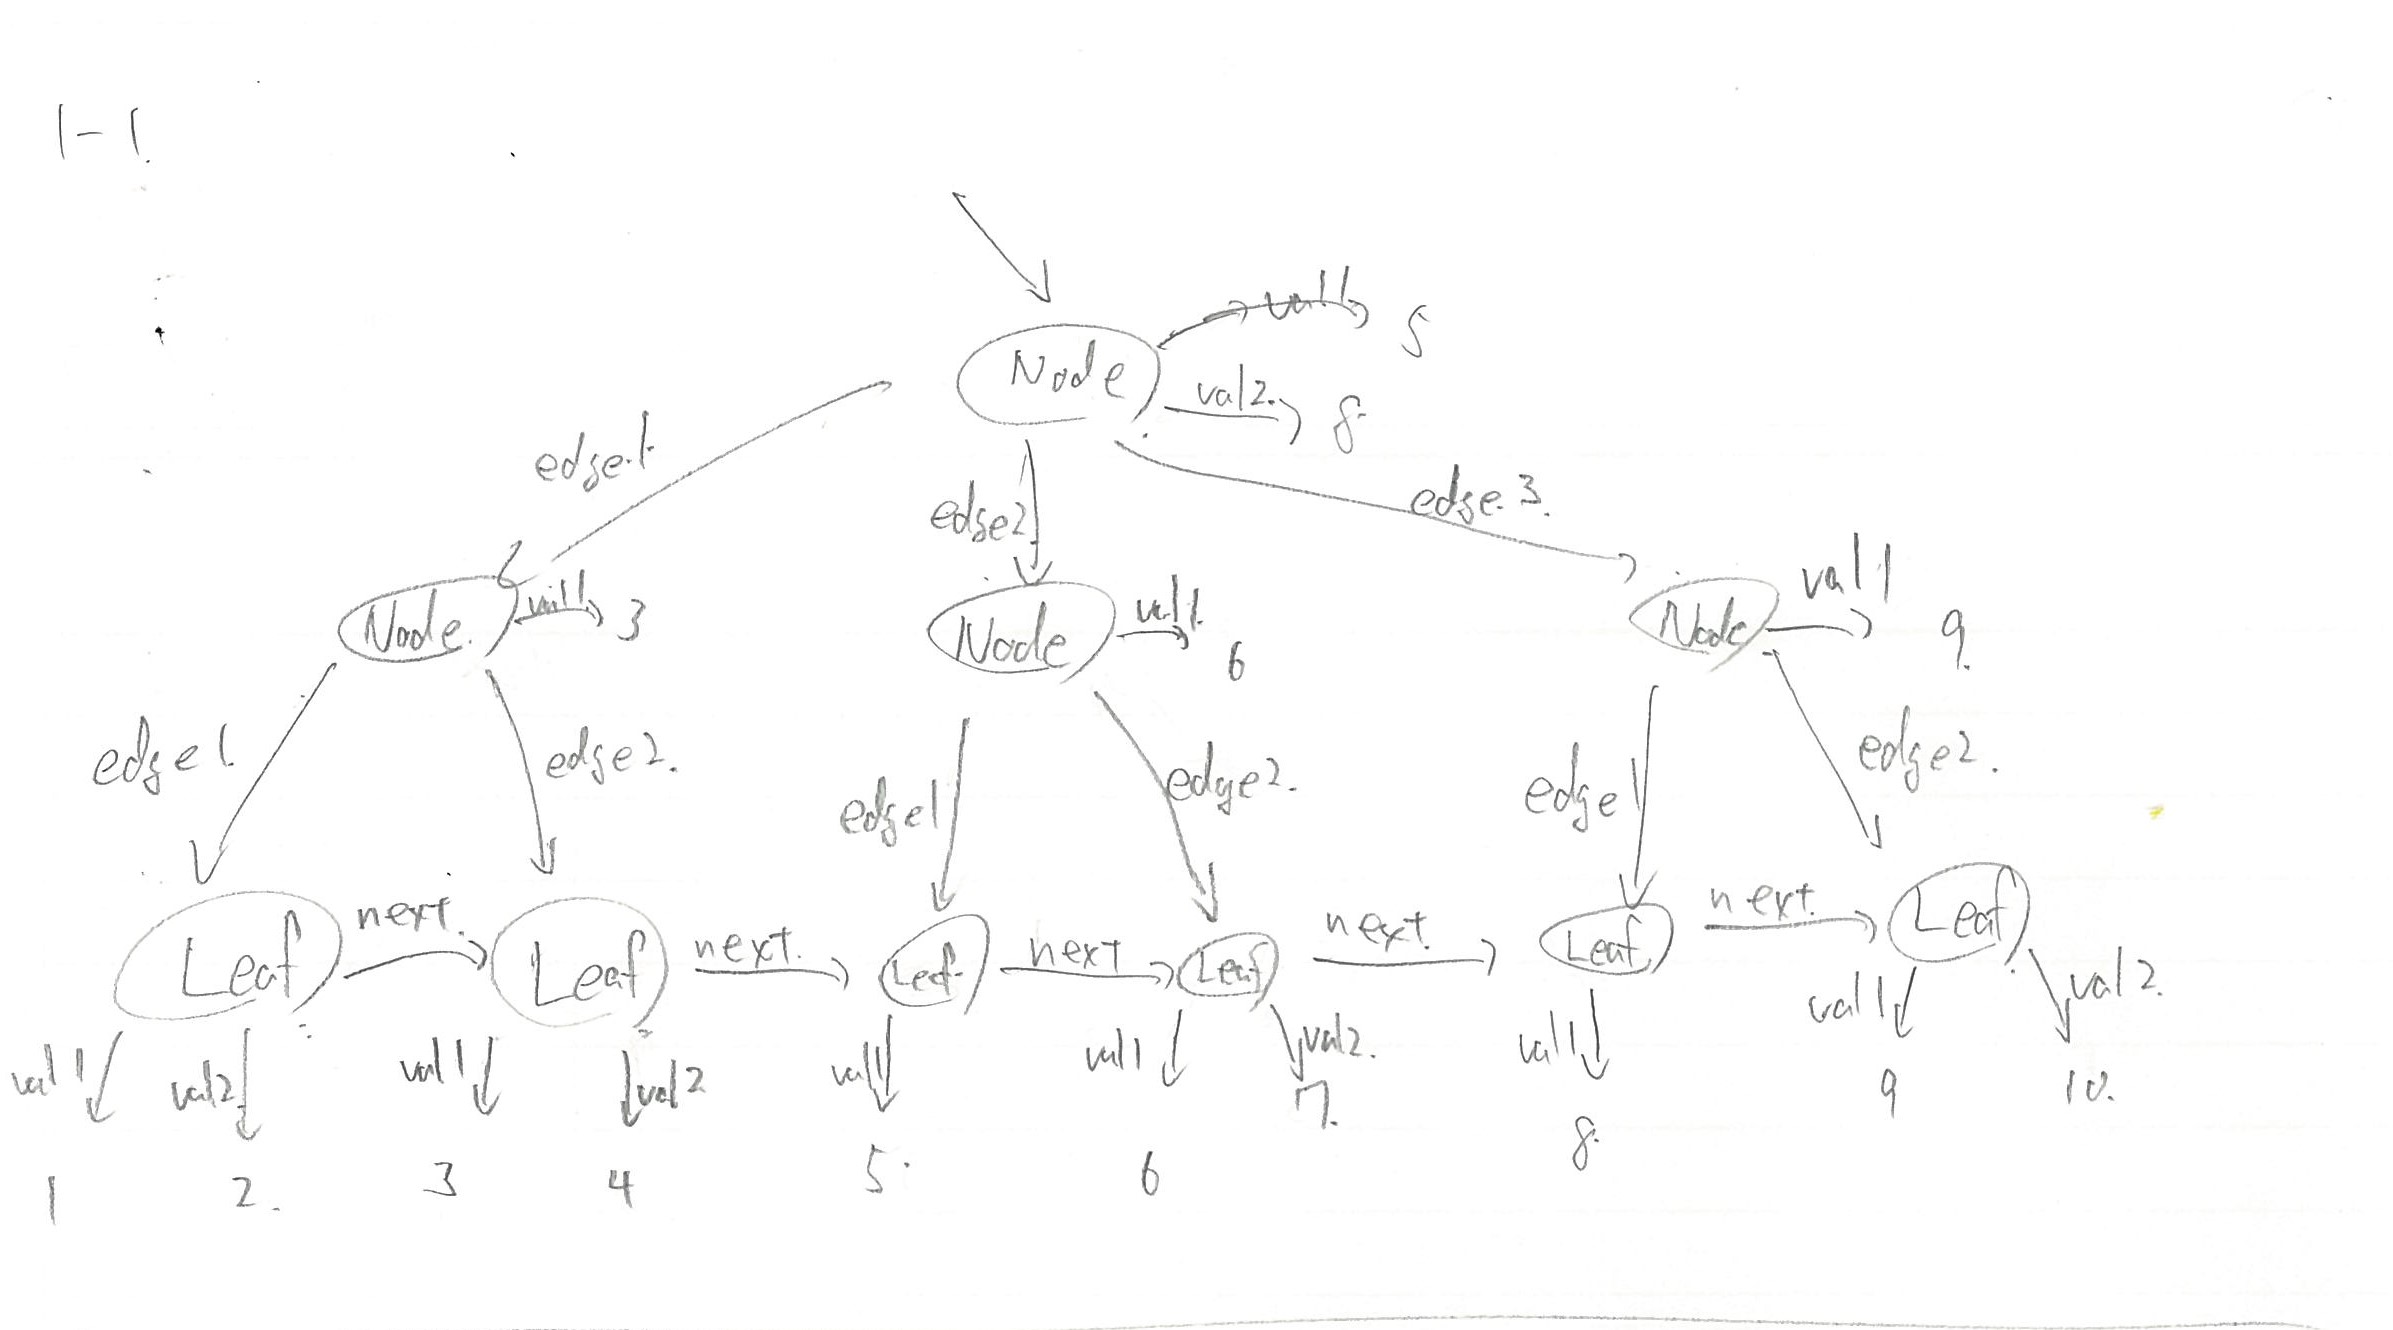 1-1.
val1 5
Node
val2. 8.
edge1
edge2
edge.3.
Node. val1 3
Node val1 6
Node val1 9.
edge1. edge2.
edge1 edge2.
edge1 edge2.
Leaf next. Leaf next. Leaf next Leaf next. Leaf next. Leaf
val1 val2 val1 val2 val1 val1 val2. val1 val1 val2.
1 2. 3 4 5. 6 7. 8. 9 10.